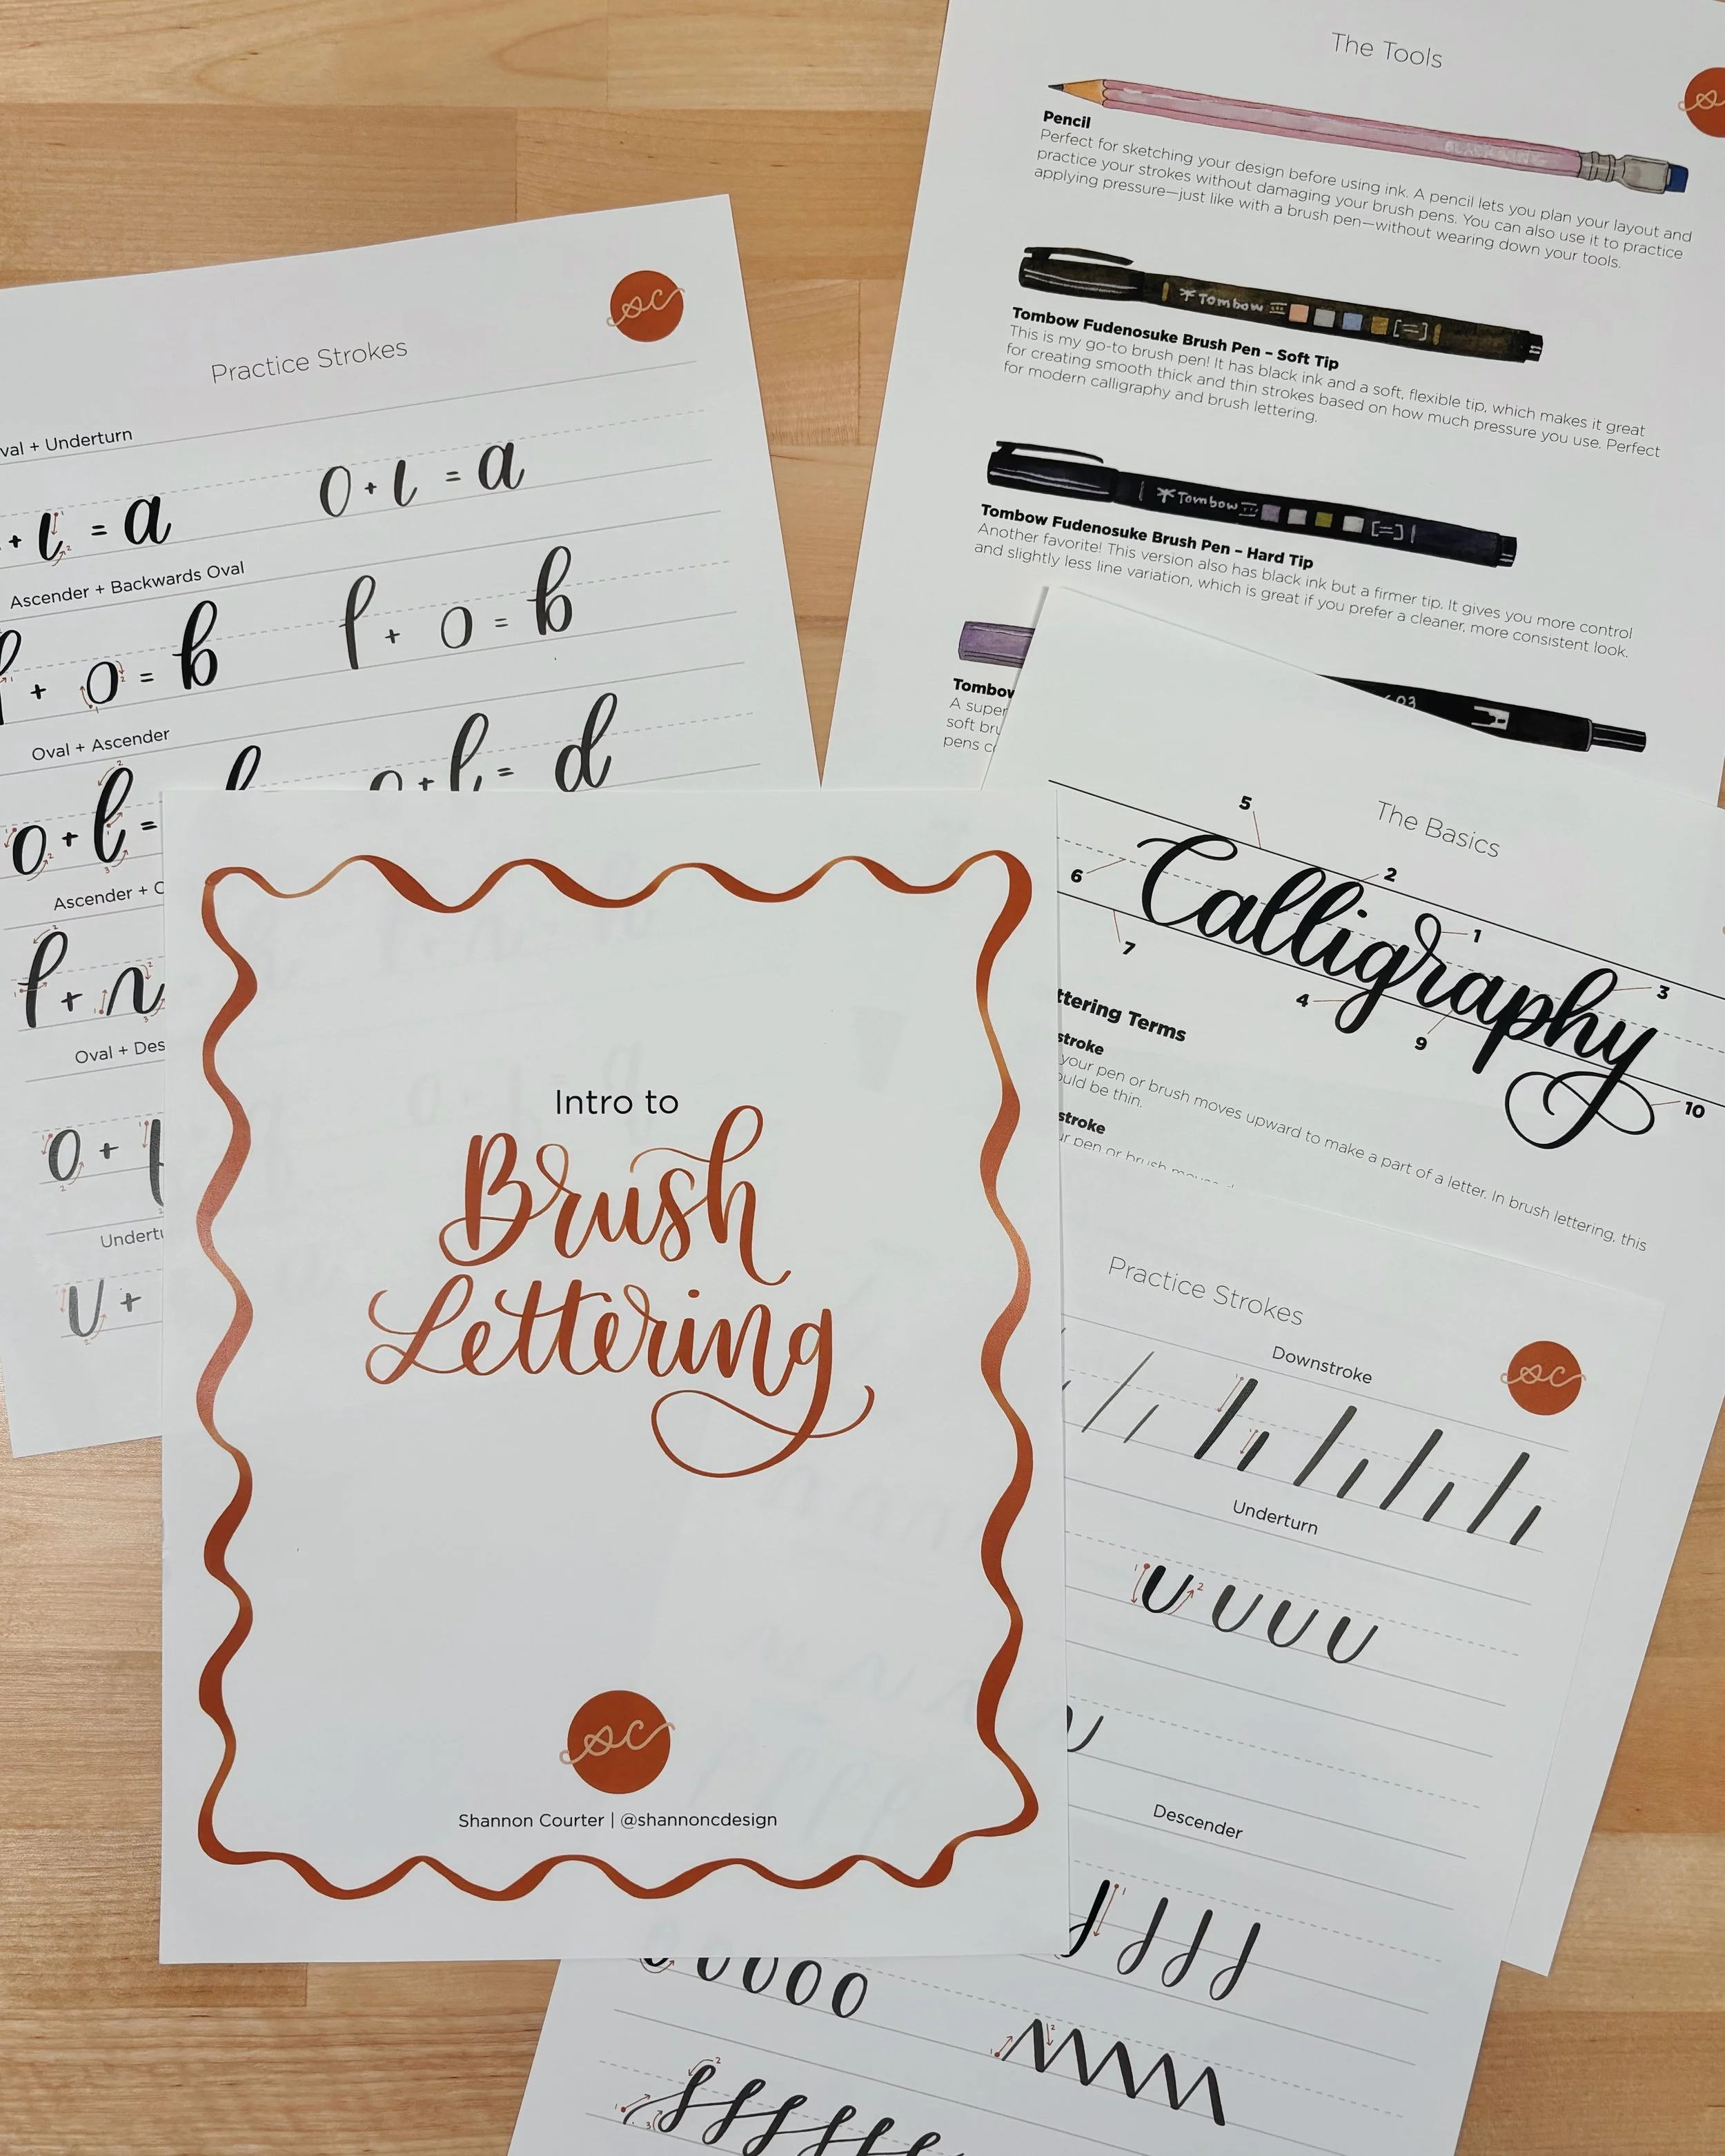 The Tools
BLACKWING
Pencil
Perfect for sketching your design before using ink. A pencil lets you plan your layout and
practice your strokes without damaging your brush pens. You can also use it to practice
applying pressure—just like with a brush pen—without wearing down your tools.
Tombow
Tombow Fudenosuke Brush Pen – Soft Tip
This is my go-to brush pen! It has black ink and a soft, flexible tip, which makes it great
for creating smooth thick and thin strokes based on how much pressure you use. Perfect
for modern calligraphy and brush lettering.
Tombow
Tombow Fudenosuke Brush Pen – Hard Tip
Another favorite! This version also has black ink but a firmer tip. It gives you more control
and slightly less line variation, which is great if you prefer a cleaner, more consistent look.
Tombow
A super
soft
pens
sc
Practice Strokes
+ Underturn
+ l = a
O + l = a
Ascender + Backwards Oval
+ O = b
l + O = b
Oval + Ascender
O + l =
+ l = d
Ascender +
l + n
Oval +
O +
U +
The Basics
5
2
6
Calligraphy
1
7
3
4
9
10
Terms
your pen or brush moves upward to make a part of a letter. In brush lettering, this
be thin.
pen or brush
Practice Strokes
Downstroke
sc
Underturn
Descender
Intro to
Brush
Lettering
sc
Shannon Courter | @shannoncdesign